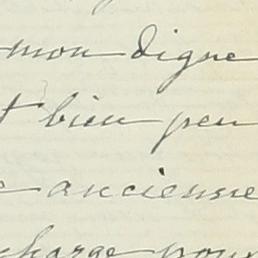 mon digne
t bien peu
e ancienne
charge pour